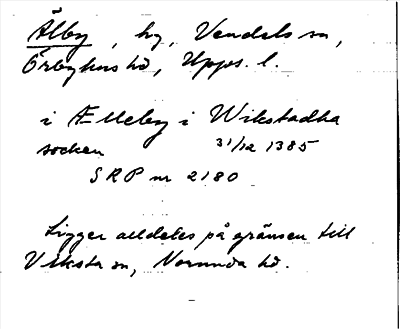 Älby, by, Vendels sn,
Örbyhus hd, Upps. l.
i Ælleby i Wikstadha
socken 31/12 1385
SRP nr 2180
Ligger alldeles på gränsen till
Viksta sn, Norunda hd.